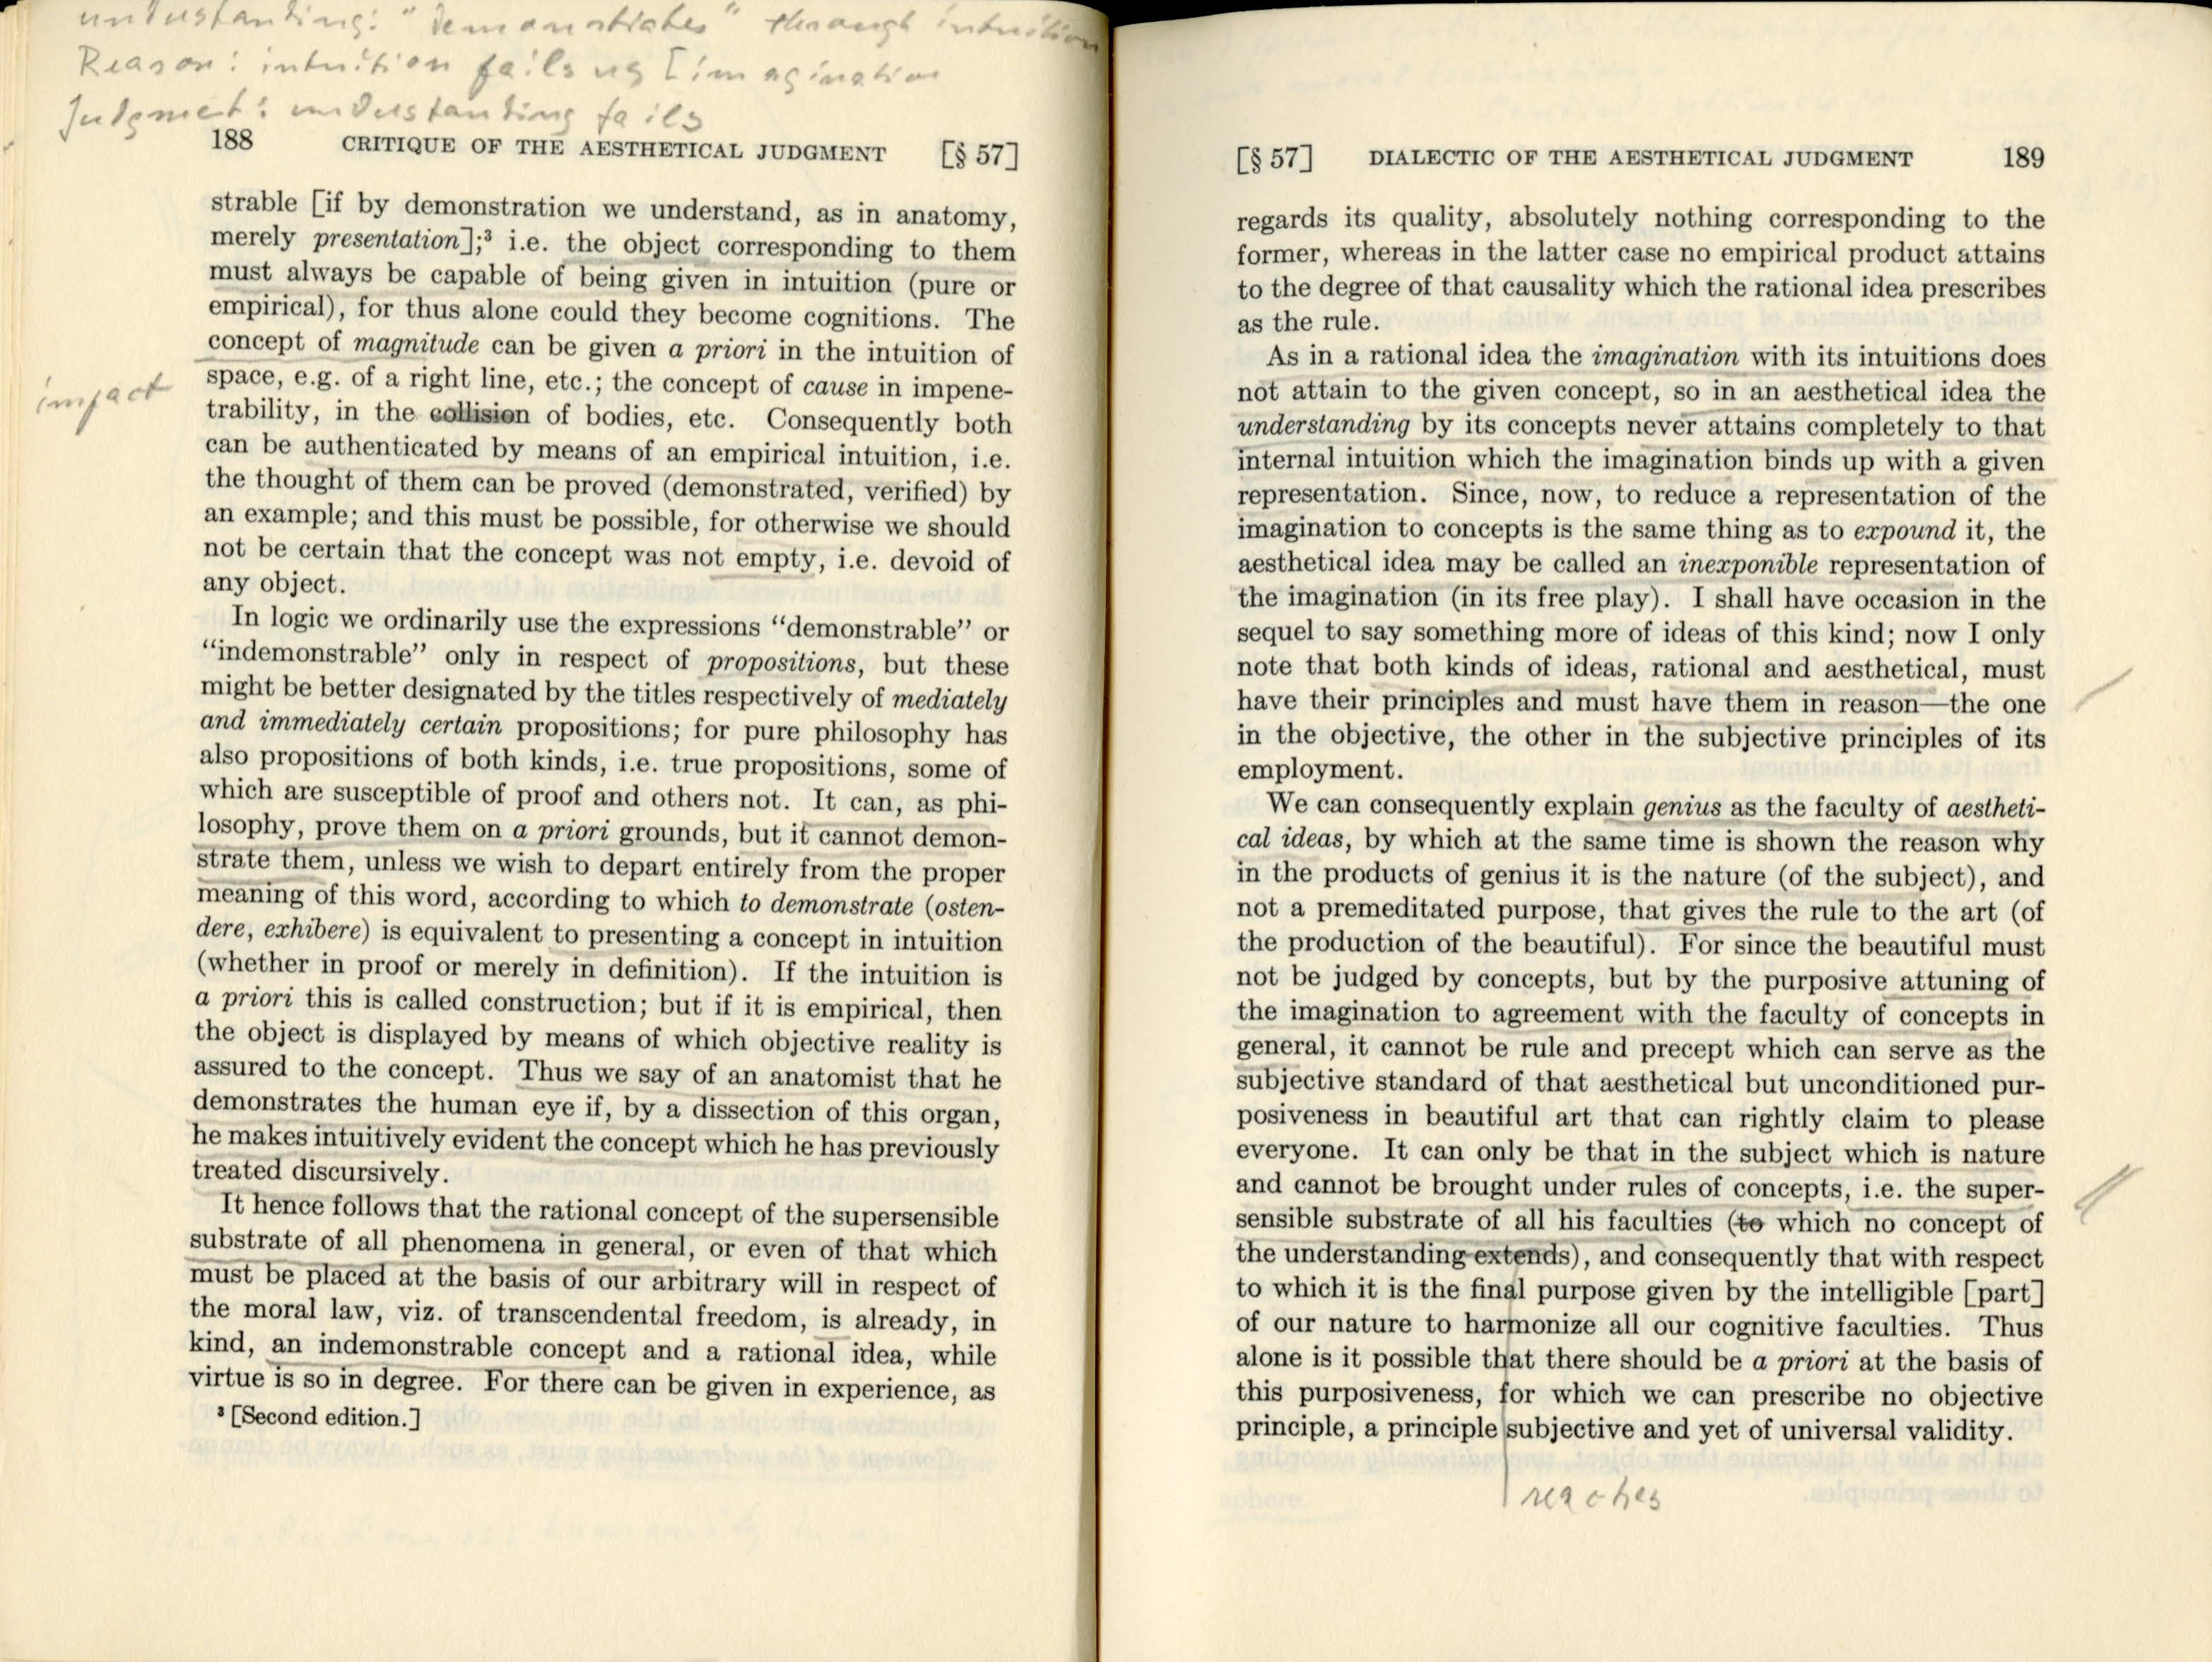 understanding: "demonstrates" through intuition
Reason: intuition fails us [imagination
Judgment: understanding fails
188 CRITIQUE OF THE AESTHETICAL JUDGMENT [§ 57]
strable [if by demonstration we understand, as in anatomy,
merely presentation];³ i.e. the object corresponding to them
must always be capable of being given in intuition (pure or
empirical), for thus alone could they become cognitions. The
concept of magnitude can be given a priori in the intuition of
space, e.g. of a right line, etc.; the concept of cause in impene-
impact
trability, in the collision of bodies, etc. Consequently both
can be authenticated by means of an empirical intuition, i.e.
the thought of them can be proved (demonstrated, verified) by
an example; and this must be possible, for otherwise we should
not be certain that the concept was not empty, i.e. devoid of
any object.
In logic we ordinarily use the expressions “demonstrable” or
“indemonstrable” only in respect of propositions, but these
might be better designated by the titles respectively of mediately
and immediately certain propositions; for pure philosophy has
also propositions of both kinds, i.e. true propositions, some of
which are susceptible of proof and others not. It can, as phi-
losophy, prove them on a priori grounds, but it cannot demon-
strate them, unless we wish to depart entirely from the proper
meaning of this word, according to which to demonstrate (osten-
dere, exhibere) is equivalent to presenting a concept in intuition
(whether in proof or merely in definition). If the intuition is
a priori this is called construction; but if it is empirical, then
the object is displayed by means of which objective reality is
assured to the concept. Thus we say of an anatomist that he
demonstrates the human eye if, by a dissection of this organ,
he makes intuitively evident the concept which he has previously
treated discursively.
It hence follows that the rational concept of the supersensible
substrate of all phenomena in general, or even of that which
must be placed at the basis of our arbitrary will in respect of
the moral law, viz. of transcendental freedom, is already, in
kind, an indemonstrable concept and a rational idea, while
virtue is so in degree. For there can be given in experience, as
³ [Second edition.]
[§ 57] DIALECTIC OF THE AESTHETICAL JUDGMENT 189
regards its quality, absolutely nothing corresponding to the
former, whereas in the latter case no empirical product attains
to the degree of that causality which the rational idea prescribes
as the rule.
As in a rational idea the imagination with its intuitions does
not attain to the given concept, so in an aesthetical idea the
understanding by its concepts never attains completely to that
internal intuition which the imagination binds up with a given
representation. Since, now, to reduce a representation of the
imagination to concepts is the same thing as to expound it, the
aesthetical idea may be called an inexponible representation of
the imagination (in its free play). I shall have occasion in the
sequel to say something more of ideas of this kind; now I only
note that both kinds of ideas, rational and aesthetical, must
have their principles and must have them in reason—the one
in the objective, the other in the subjective principles of its
employment.
We can consequently explain genius as the faculty of aestheti-
cal ideas, by which at the same time is shown the reason why
in the products of genius it is the nature (of the subject), and
not a premeditated purpose, that gives the rule to the art (of
the production of the beautiful). For since the beautiful must
not be judged by concepts, but by the purposive attuning of
the imagination to agreement with the faculty of concepts in
general, it cannot be rule and precept which can serve as the
subjective standard of that aesthetical but unconditioned pur-
posiveness in beautiful art that can rightly claim to please
everyone. It can only be that in the subject which is nature
and cannot be brought under rules of concepts, i.e. the super-
sensible substrate of all his faculties (to which no concept of
the understanding extends), and consequently that with respect
to which it is the final purpose given by the intelligible [part]
of our nature to harmonize all our cognitive faculties. Thus
alone is it possible that there should be a priori at the basis of
this purposiveness, for which we can prescribe no objective
principle, a principle subjective and yet of universal validity.
reaches